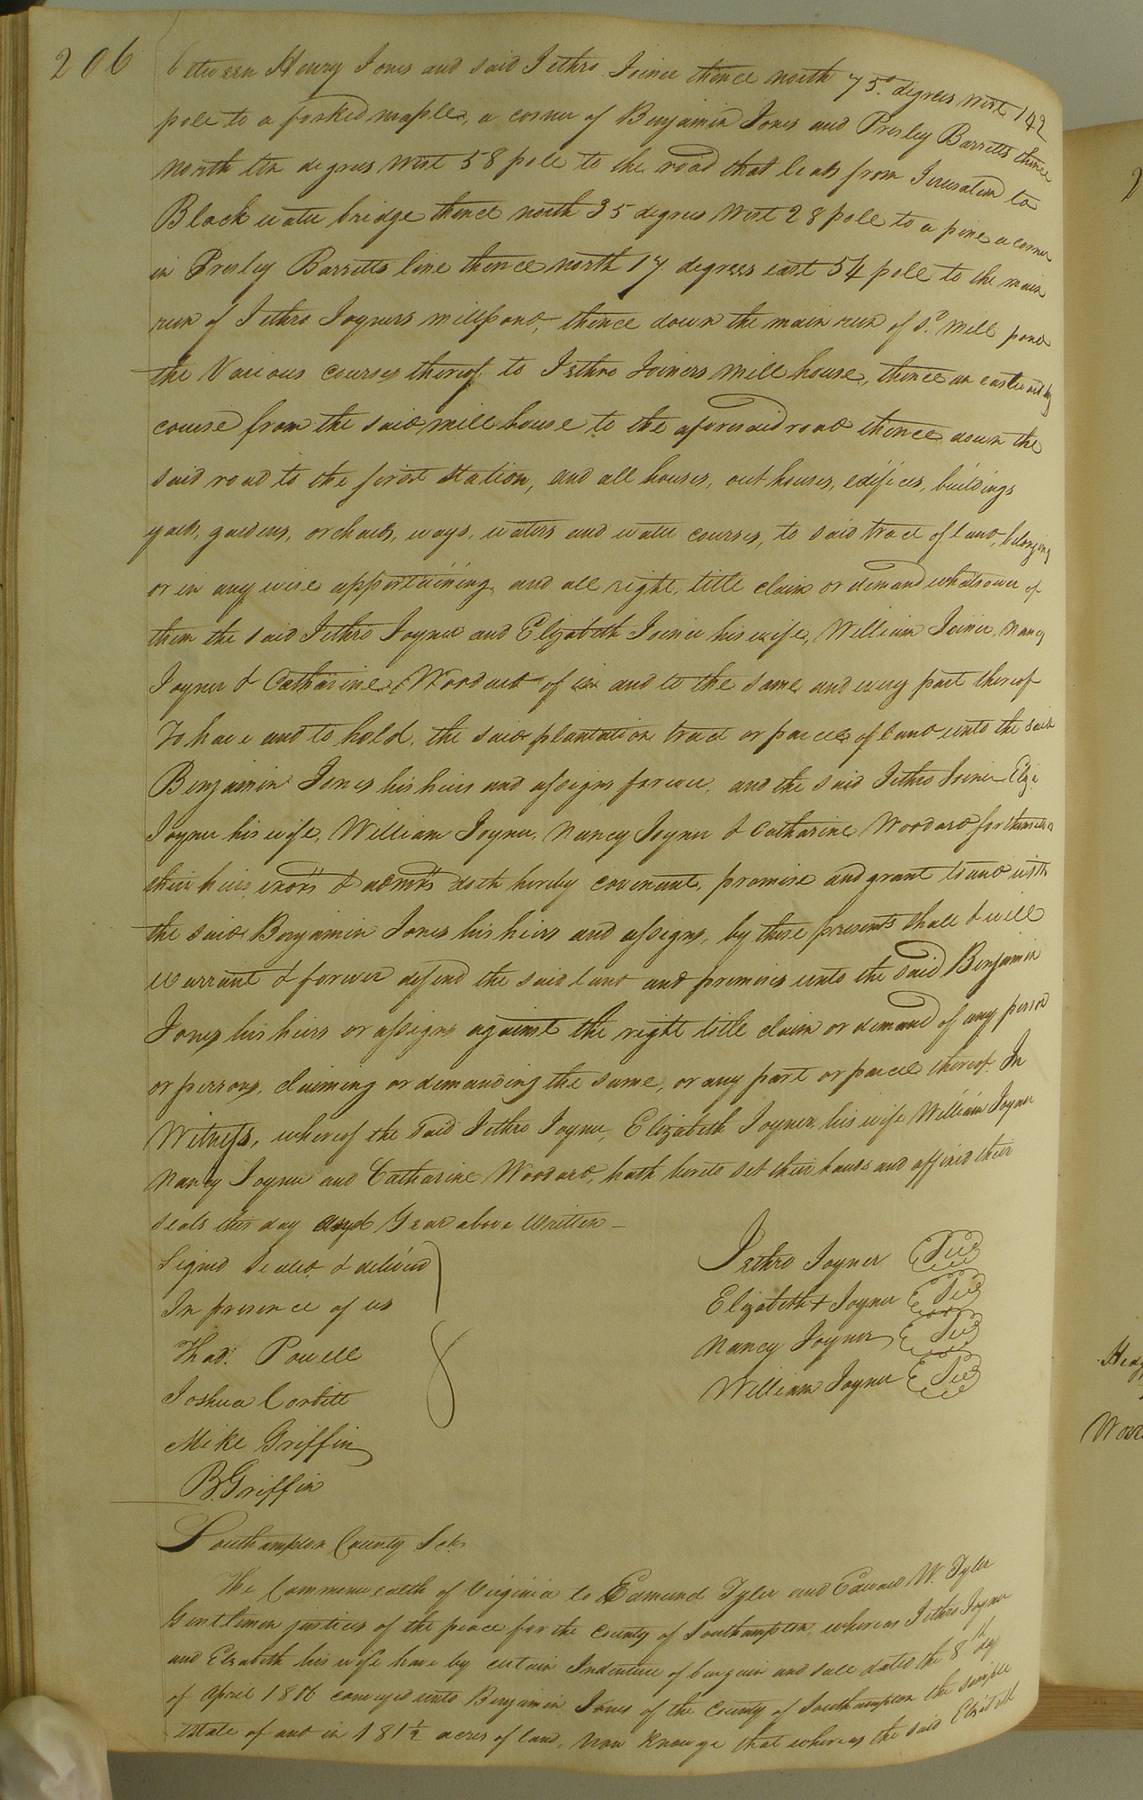 206
between Henry Jones and said Jethro Joiner thence north 75 degrees west 142
pole to a forked maple, a corner of Benjamin Jones and Presley Barretts thence
north ten degrees west 58 pole to the road that leads from Jerusalem to
Black water bridge thence north 35 degrees west 28 pole to a pine a corner
in Presley Barretts line thence north 17 degrees east 54 pole to the main
run of Jethro Joyners millpond, thence down the main run of sd. mill pond
the Various courses thereof to Jethro Joiners mill house, thence an eastwardly
course from the said mill house to the aforesaid road thence down the
said road to the first station, and all houses, out houses, edifices, buildings
yards, gardens, orchards, ways, waters and water courses, to said tract of land, belonging
or in any wise appertaining, and all right, title claim or demand whatsoever of
them the said Jethro Joyner and Elizabeth Joiner his wife, William Joiner, Nancy
Joyner & Catharine Woodard of in and to the same, and every part thereof
To have and to hold, the said plantation tract or parcel of land unto the said
Benjamin Jones his heirs and assigns forever, and the said Jethro Joiner Eliza
Joyner his wife, William Joyner, Nancy Joyner & Catharine Woodard for themselves
their heirs, exors & admrs doth hereby covenant, promise and grant to and with
the said Benjamin Jones his heirs and assigns, by these presents shall & will
warrant & forever defend the said land and premises unto the said Benjamin
Jones his heirs or assigns against the right title claim or demand of any person
or persons, claiming or demanding the same, or any part or parcel thereof. In
Witness, whereof the said Jethro Joyner, Elizabeth Joyner his wife William Joyner
Nancy Joyner and Catharine Woodard, hath hereto set their hands and affixed their
seals this day and Year above Written
Signed Sealed & delivered
In presence of us
Thos. Powell
Joshua Corbitt
Mike Griffin
B. Griffin
Jethro Joyner Seal
Elizabeth + Joyner Seal
Nancy Joyner Seal
William Joyner Seal
Southampton County Sct.
The Commonwealth of Virginia to Edmund Tyler and Edward W. Tyler
Gentlemen justices of the peace for the county of Southampton, whereas Jethro Joyner
and Elizabeth his wife have by certain Indenture of bargain and sale dated the 8th day
of April 1816 conveyed unto Benjamin Jones of the County of Southampton the fee simple
estate of and in 181 1/2 acres of land, Now Know ye that whereas the said Elizabeth